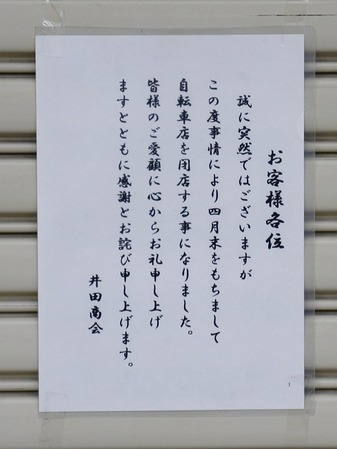 お客様各位
誠に突然ではございますが
この度事情により四月末をもちまして
自転車店を閉店する事になりました。
皆様のご愛顧に心からお礼申し上げ
ますとともに感謝とお詫び申し上げます。
井田商会